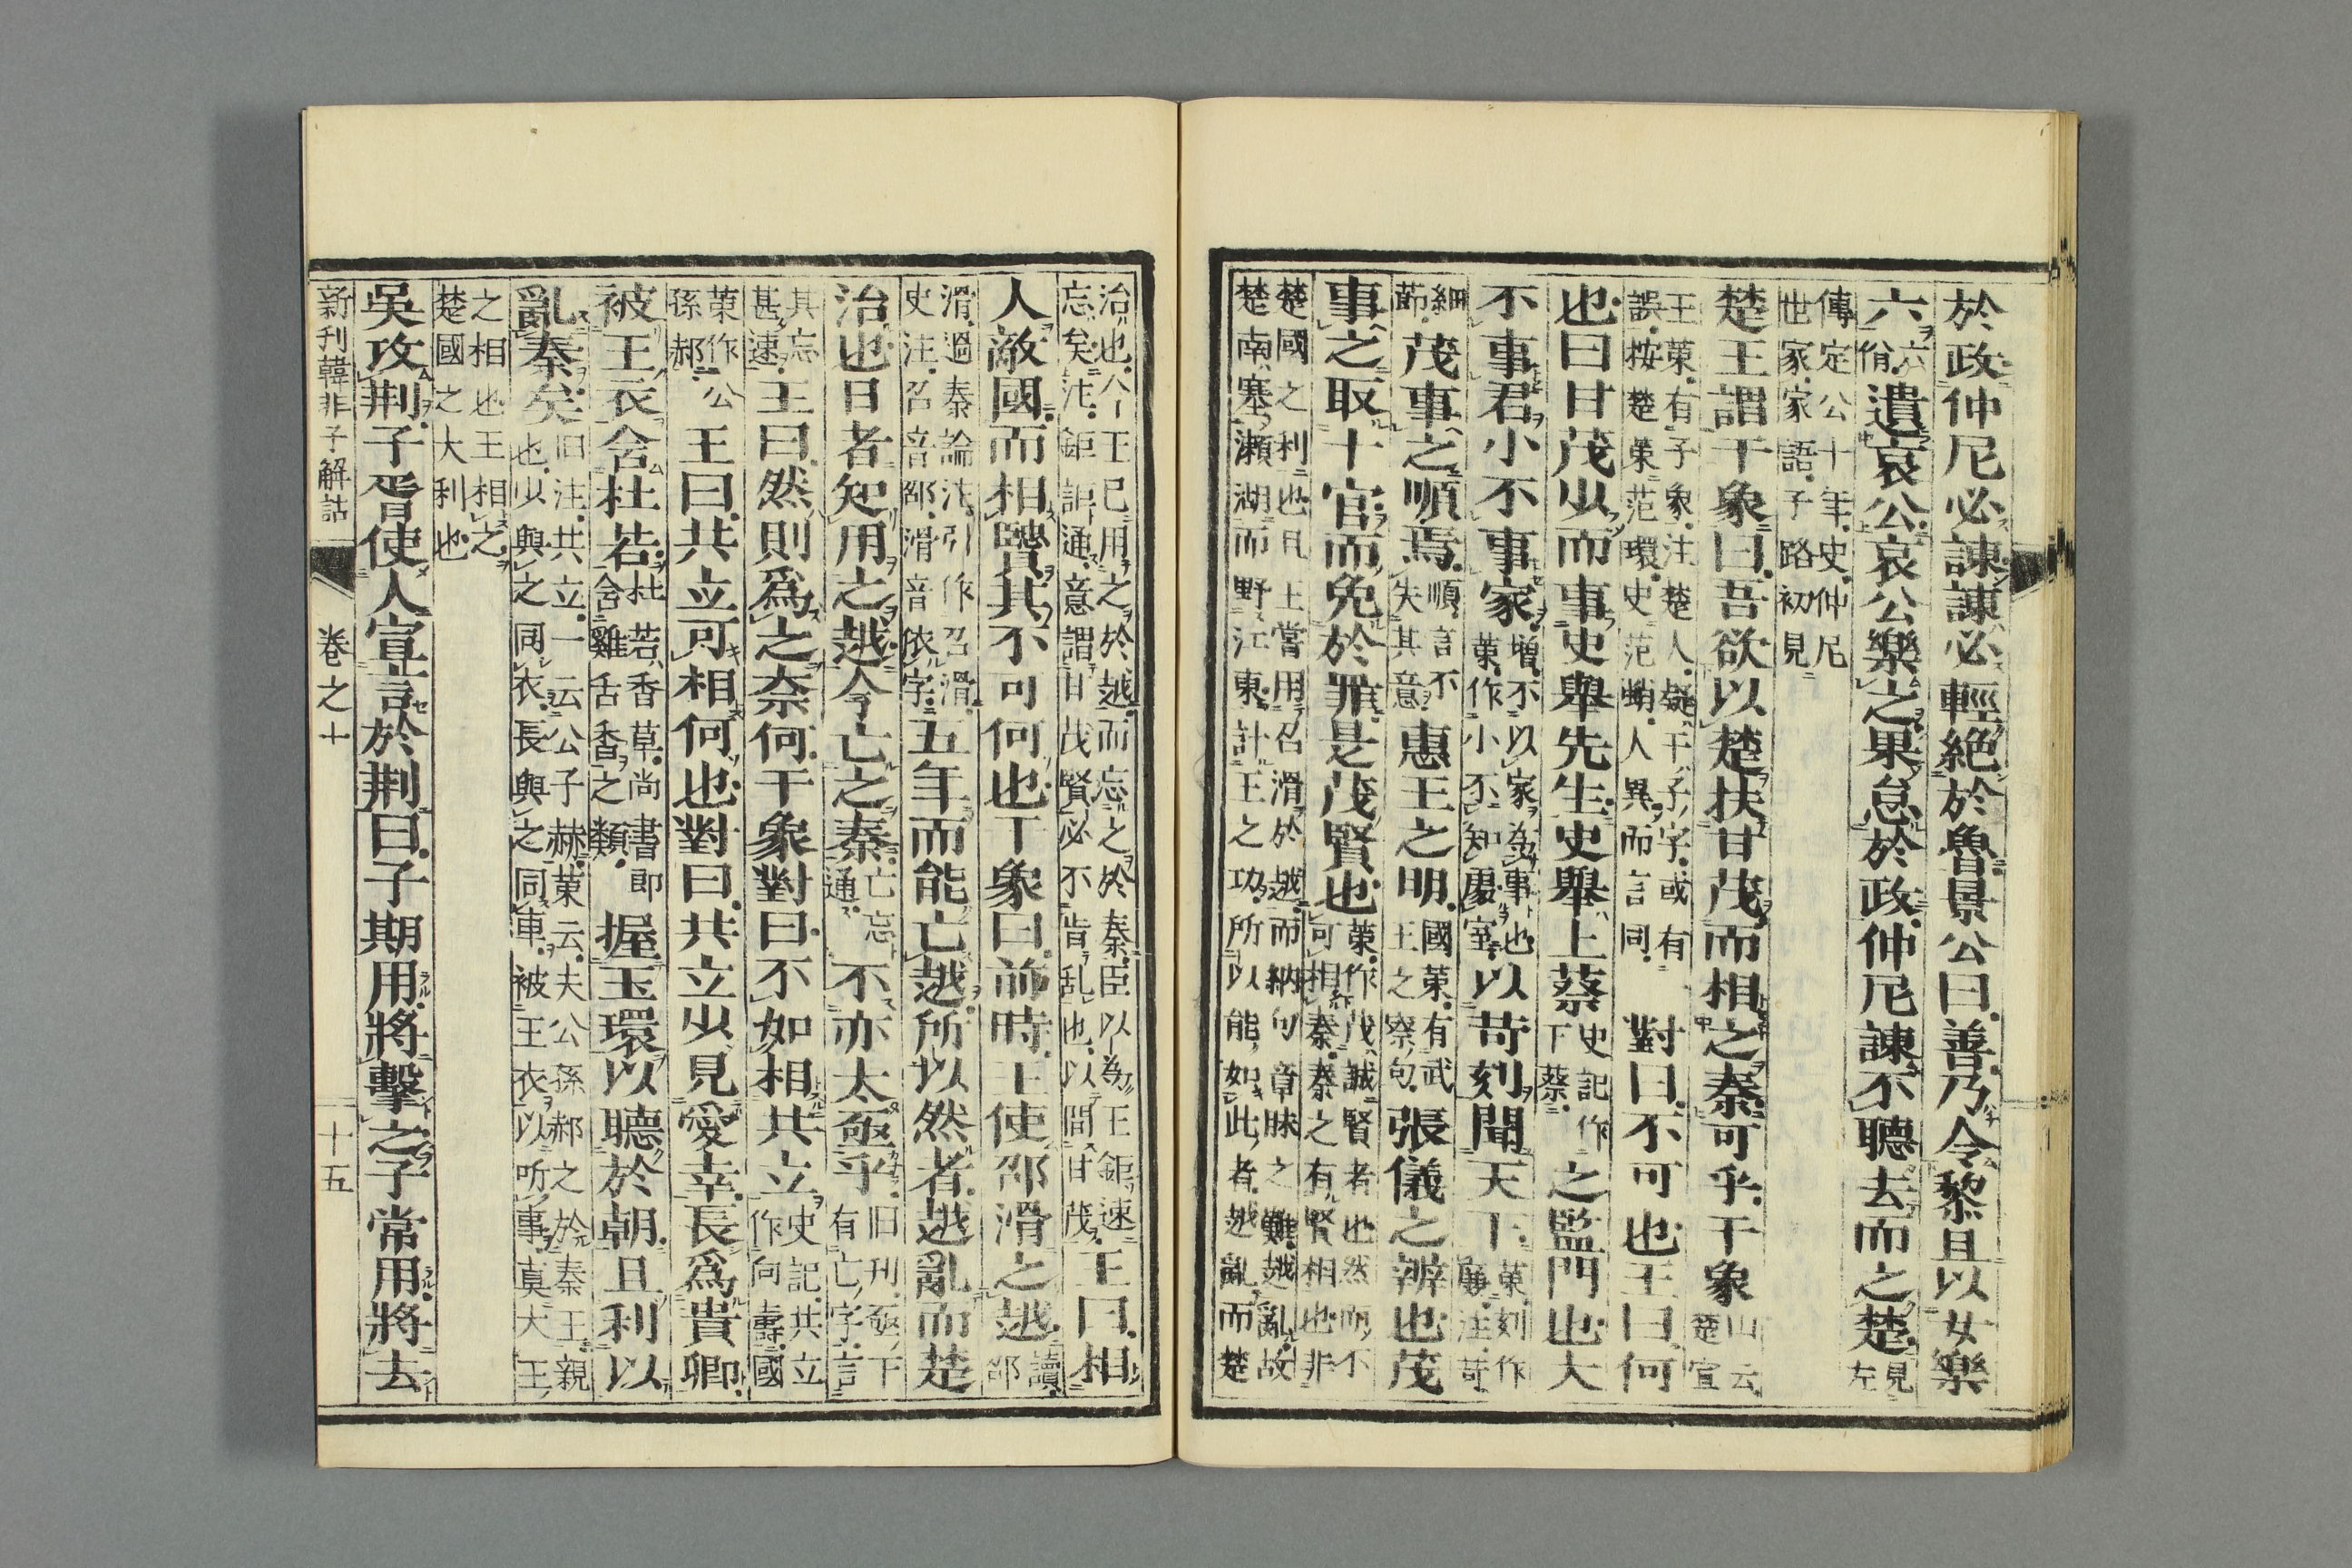 於政仲尼必諫諫必輕絕於魯景公曰善乃令黎且以女樂
六六佾遺哀公哀公樂之果怠於政仲尼諫不聽去而之楚見左
傳定公十年史仲尼
世家家語子路初見
楚王謂干象曰吾欲以楚扶甘茂而相之秦可乎干象山云楚宣
王策有子象注楚人疑干子字或有
誤按楚策范環史范蜎人異而言同
對曰不可也王曰何
也曰甘茂少而事史舉先生史舉上蔡史記作下蔡之監門也大
不事君小不事家增不以家為事也策作小不知處室以苛刻聞天下策刻作廉注苛
細節茂事之順焉順言不失其意惠王之明國策有武王之察句張儀之辨也茂
事之取十官而免於罪是茂賢也策作茂誠賢者也然而不可相秦秦之有賢相也非
楚國之利也且王嘗用召滑於越而納句章昧之難越亂故
楚南塞瀨湖而野江東計王之功所以能如此者越亂而楚
治也今王已用之於越而忘之於秦臣以為王鉅速
忘矣注鉅詎通意謂甘茂賢必不肯乱也以問甘茂
王曰相
人敵國而相賢其不可何也干象曰前時王使邵滑之越讀邵
滑過秦論注引作召滑
史注召音邵滑音依字
五年而能亡越所以然者越亂而楚
治也日者知用之越今亡之秦亡忘通不亦太亟乎旧刊亟下有亡字言
其忘甚速王曰然則為之奈何干象對曰不如相共立史記共立作向壽國
策作公孫郝王曰共立可相何也對曰共立少見愛幸長為貴卿
被王衣含杜若杜若香草尚書郎含雞舌香之類握玉環以聽於朝且利以
亂秦矣旧注共立一云公子赫策云夫公孫郝之於秦王親也少與之同衣長與之同車被王衣以听事真大王
之相也王相之
楚國之大利也
吳攻荆子胥使人宣言於荆曰子期用將擊之子常用將去
新刊韓非子解詁 卷之十 十五